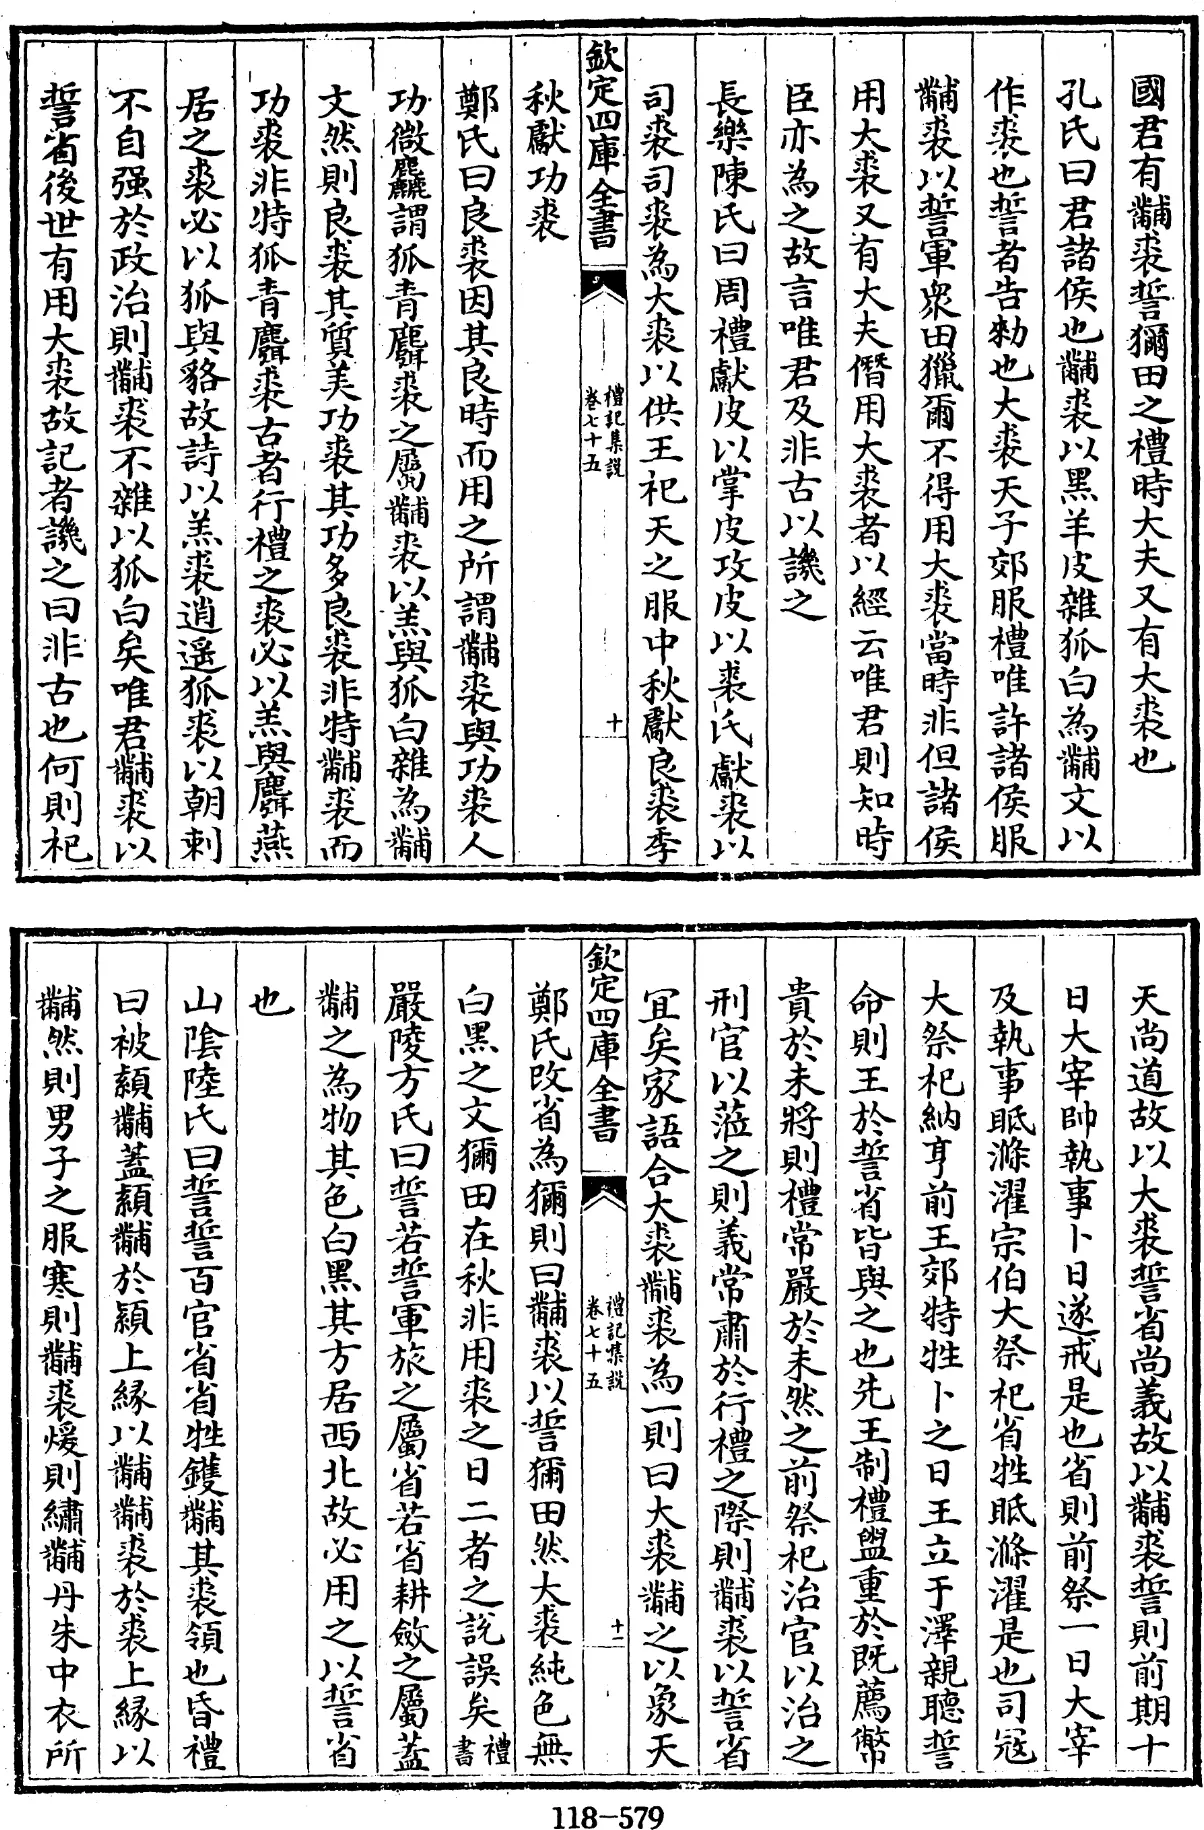 國君有黼裘誓獮田之禮時大夫又有大裘也
孔氏曰君諸侯也黼裘以黑羊皮雜狐白為黼文以
作裘也誓者告勑也大裘天子郊服禮唯許諸侯服
黼裘以誓軍衆田獵爾不得用大裘當時非但諸侯
用大裘又有大夫僭用大裘者以經云唯君則知時
臣亦為之故言唯君及非古以譏之
長樂陳氏曰周禮獻皮以掌皮攻皮以裘氏獻裘以
司裘司裘為大裘以供王祀天之服中秋獻良裘季
欽定四庫全書
禮記集說
卷七十五
十
秋獻功裘
鄭氏曰良裘因其良時而用之所謂黼裘與功裘人
功微麤謂狐青麛裘之屬黼裘以羔與狐白雜為黼
文然則良裘其質美功裘其功多良裘非特黼裘而
功裘非特狐青麛裘古者行禮之裘必以羔與麛燕
居之裘必以狐與貉故詩以羔裘逍遥狐裘以朝刺
不自强於政治則黼裘不雜以狐白矣唯君黼裘以
誓省後世有用大裘故記者譏之曰非古也何則祀
天尚道故以大裘誓省尚義故以黼裘誓則前期十
日大宰帥執事卜日遂戒是也省則前祭一日大宰
及執事眡滌濯宗伯大祭祀省牲眡滌濯是也司冦
大祭祀納亨前王郊特牲卜之日王立于澤親聽誓
命則王於誓省皆與之也先王制禮盥重於既薦幣
貴於未將則禮常嚴於未然之前祭祀治官以治之
刑官以蒞之則義常肅於行禮之際則黼裘以誓省
宜矣家語合大裘黼裘為一則曰大裘黼之以象天
欽定四庫全書
禮記集說
卷七十五
十一
鄭氏改省為獮則曰黼裘以誓獮田然大裘純色無
白黑之文獮田在秋非用裘之日二者之說誤矣禮書
嚴陵方氏曰誓若誓軍旅之屬省若省耕斂之屬蓋
黼之為物其色白黑其方居西北故必用之以誓省
也
山隂陸氏曰誓誓百官省省牲鑊黼其裘領也昏禮
曰被纇黼蓋纇黼於領上緣以黼黼裘於裘上緣以
黼然則男子之服寒則黼裘煖則繡黼丹朱中衣所
118-579